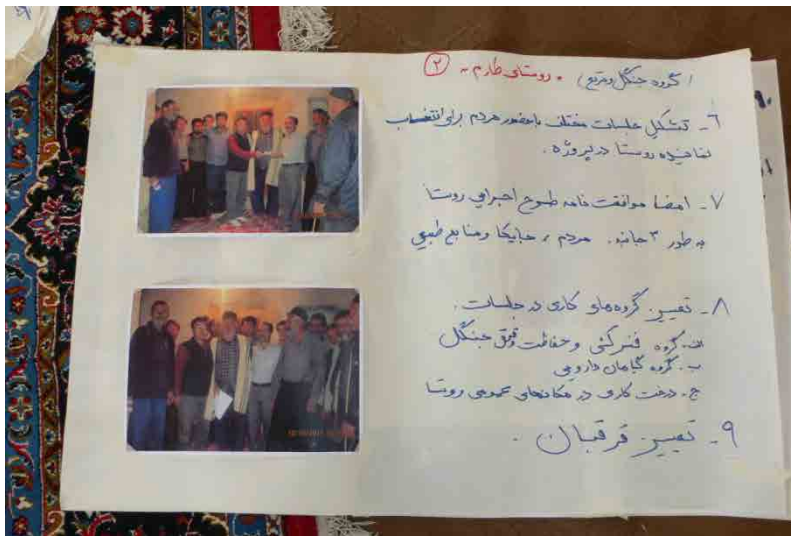 (گروه جنگل و مرتع) • روستای طارم ۲
۶- تشکیل جلسات مختلف با حضور مردم برای انتخاب
نماینده روستا در پروژه.
۷- امضا موافقت نامه طرح اجرایی روستا
به طور ۳ جانبه. مردم، جایکا و منابع طبیعی
۸- تعیین گروه‌های کاری در جلسات.
الف. گروه فنس کشی و حفاظت و قرق جنگل
ب. گروه گیاهان دارویی
ج. درخت کاری در مکان‌های عمومی روستا
۹- تعیین قرقبان.